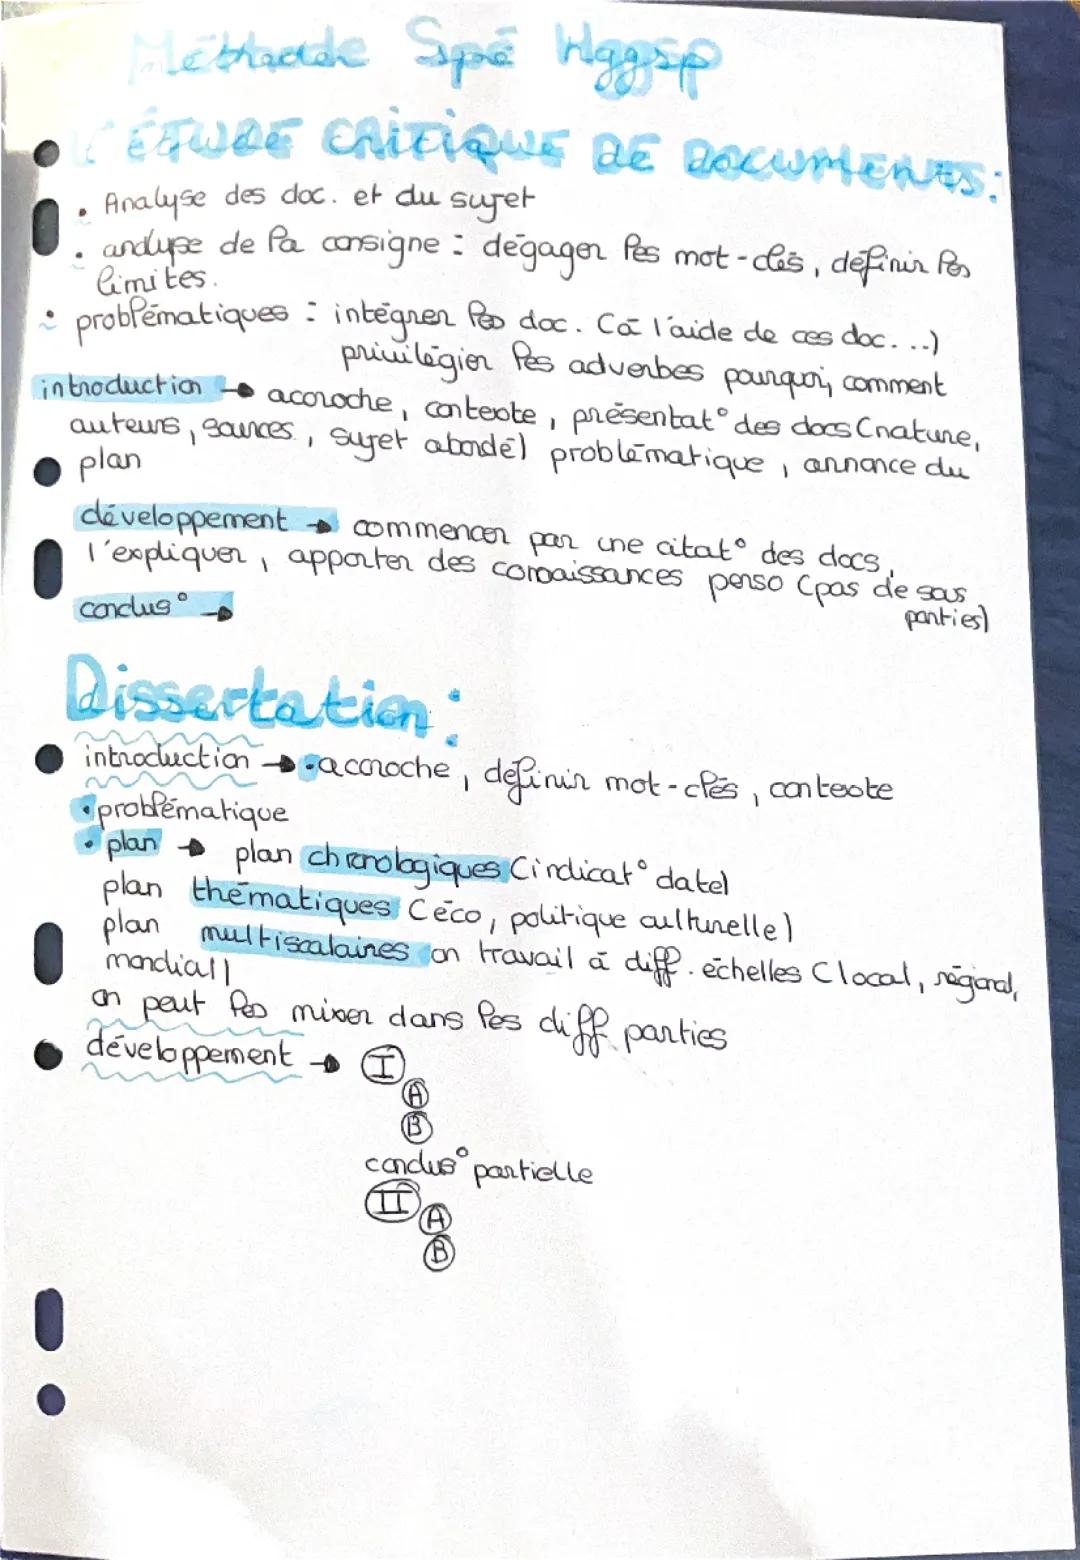 Méthode Spé Hggsp
L'ÉTUDE CRITIQUE DE DOCUMENTS:
• Analyse des doc. et du sujet
• analyse de la consigne : dégager les mot-clés, définir les
limites.
• problématiques : intégrer les doc. (à l'aide de ces doc...)
privilégier les adverbes pourquoi, comment
introduction → accroche, contexte, présentat° des docs (nature,
auteurs, sources, sujet abordé) problématique, annonce du
plan
développement → commencer par une citat° des docs,
l'expliquer, apporter des connaissances perso (pas de sous
parties)
conclus° →
Dissertation :
introduction → • accroche, définir mot-clés, contexte
• problématique
• plan → plan chronologiques (indicat° date)
plan thématiques (éco, politique culturelle)
plan multiscalaires on travail à diff. échelles (local, régional,
mondial)
on peut les mixer dans les diff parties
développement → I
A
B
conclus° partielle
II A
B